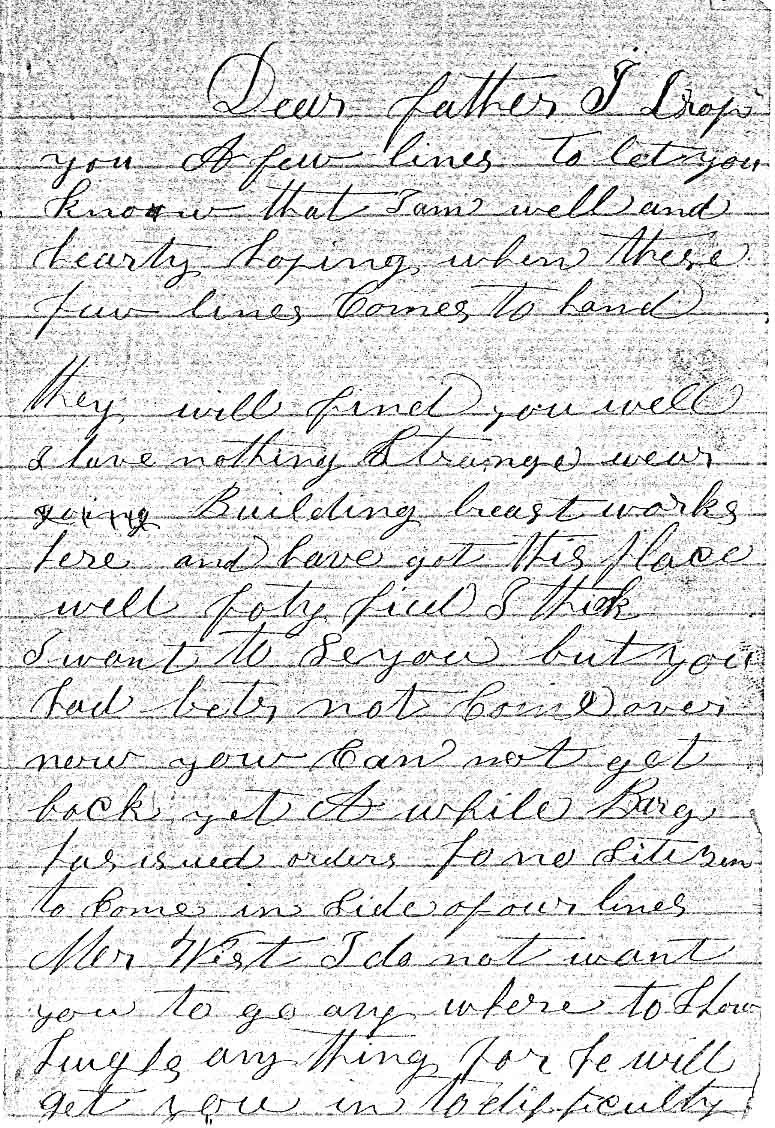 Dear father I Drop
you A few lines to let you
know that I am well and
hearty hoping when these
few lines Comes to hand
they will find you well
I have nothing Strange wear
Building breast works
here and have got this place
well foty fied I think
I want to Se you but you
had beter not Come over
now your Can not get
back yet A while Brag
has isued orders fo no Sitizen
to Come in Side of our lines
Mer West I do not want
you to go any where to Show
any thing for he will
get you in to difficulty